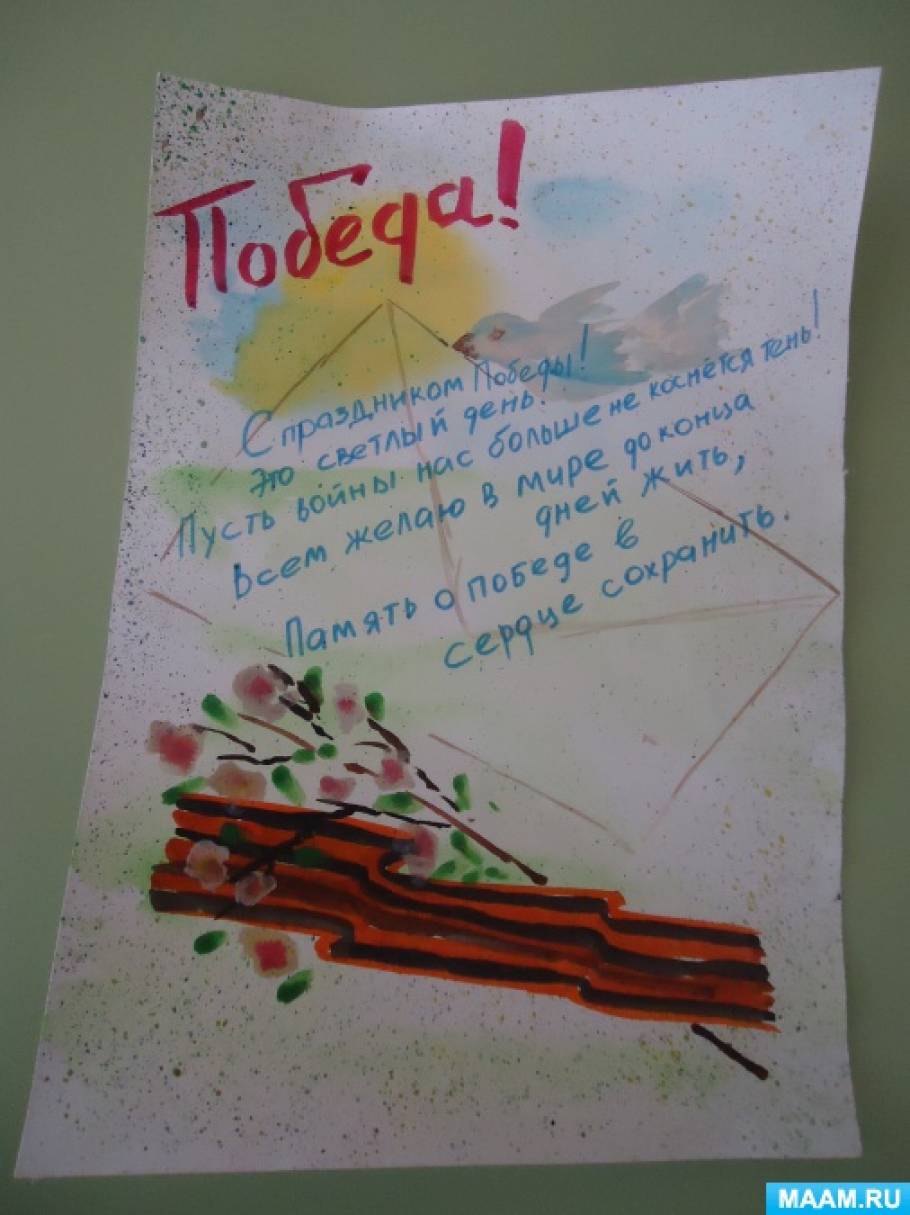 Победа!
С праздником Победы!
Это светлый день.
Пусть войны нас больше не коснётся тень!
Всем желаю в мире до конца
дней жить,
Память о победе в
сердце сохранить.
MAAM.RU